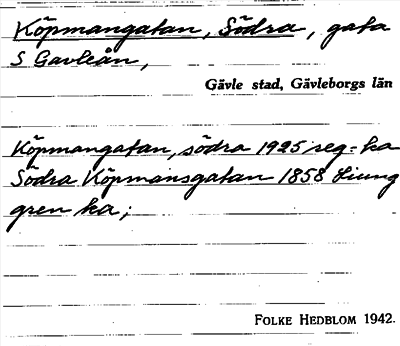 Köpmangatan, Södra, gata
S Gavleån,
Gävle stad, Gävleborgs län
Köpmangatan, södra 1925 reg=ka
Södra Köpmansgatan 1858 Ljung
gren ka;
FOLKE HEDBLOM 1942.